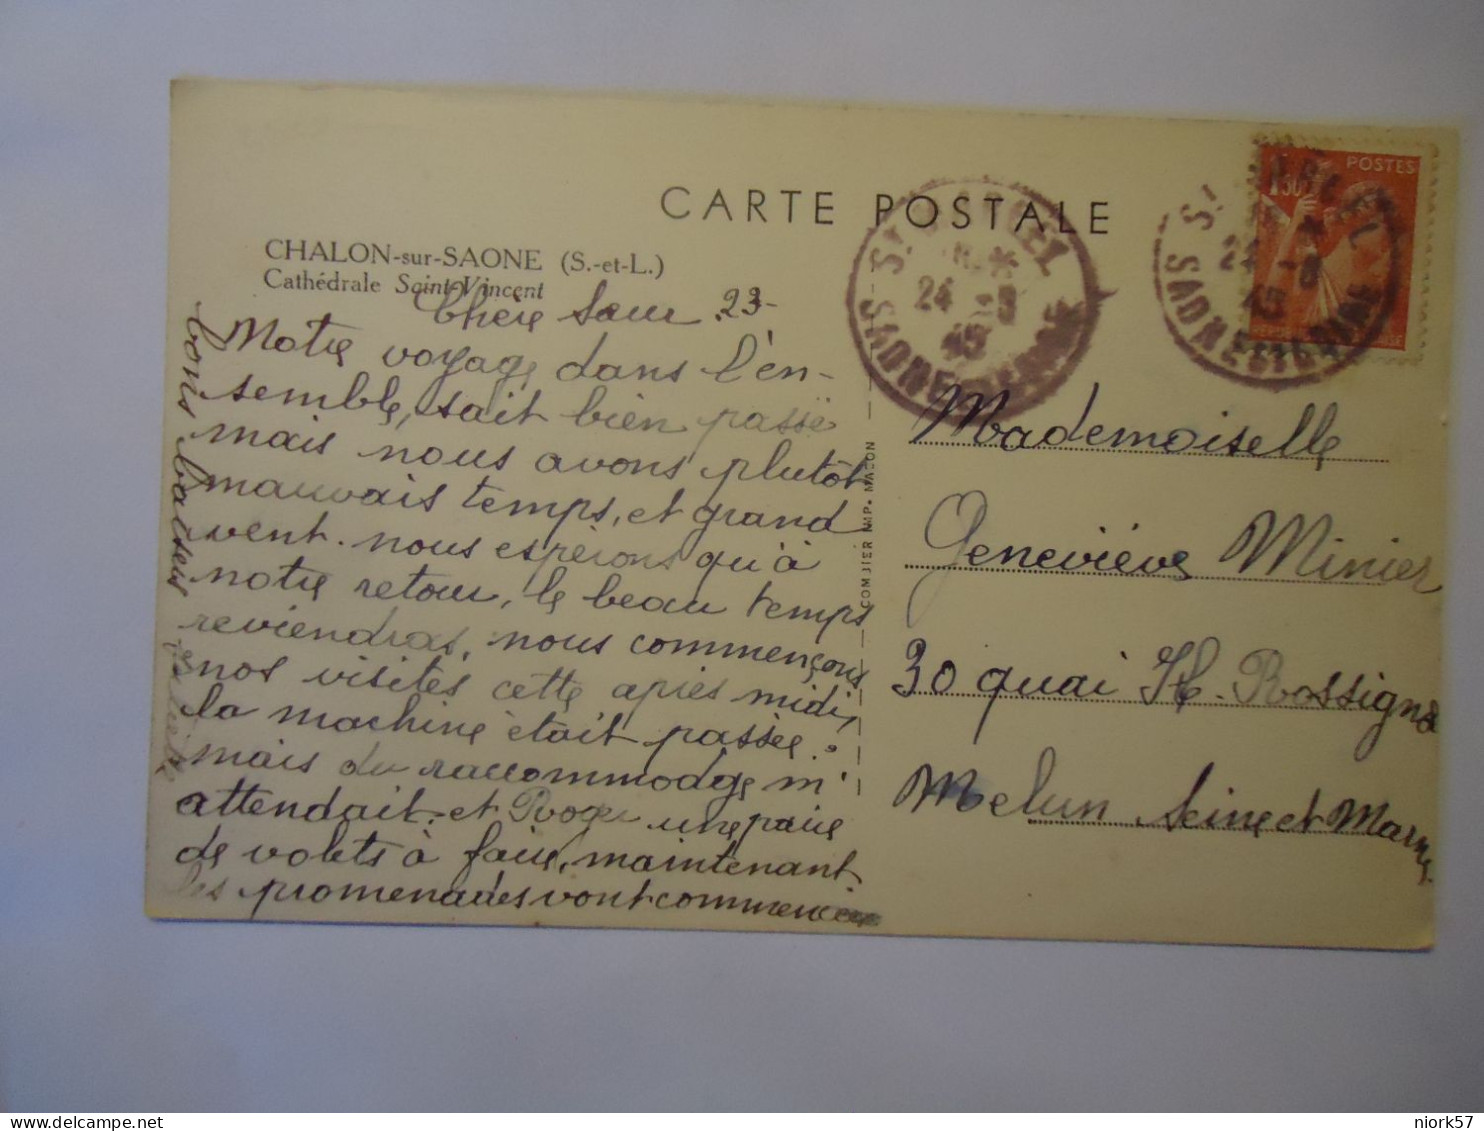 CARTE POSTALE
CHALON-sur-SAONE (S.-et-L.)
Cathédrale Saint-Vincent
Chère Sœur 23-
Notre voyage dans l'én-
semble, sait bien passé
mais nous avons plutôt
mauvais temps, et grand
vent. nous espérons qu'à
notre retour, le beau temps
reviendras, nous commençons
nos visites cette après midi,
la machine était passée.
mais du raccommodge m'
attendait. et Roger une paire
de volets à faire, maintenant
les promenades vont commencer
bons baisers
COMBIER IMP. MACON
POSTES
1f50
ST MARCEL
24 -8
45
SAONE ET LOIRE
ST MARCEL
24 -8
45
SAONE ET LOIRE
Mademoiselle
Geneviève Minier
30 quai H. Rossignol
Melun Seine et Marne
niork57